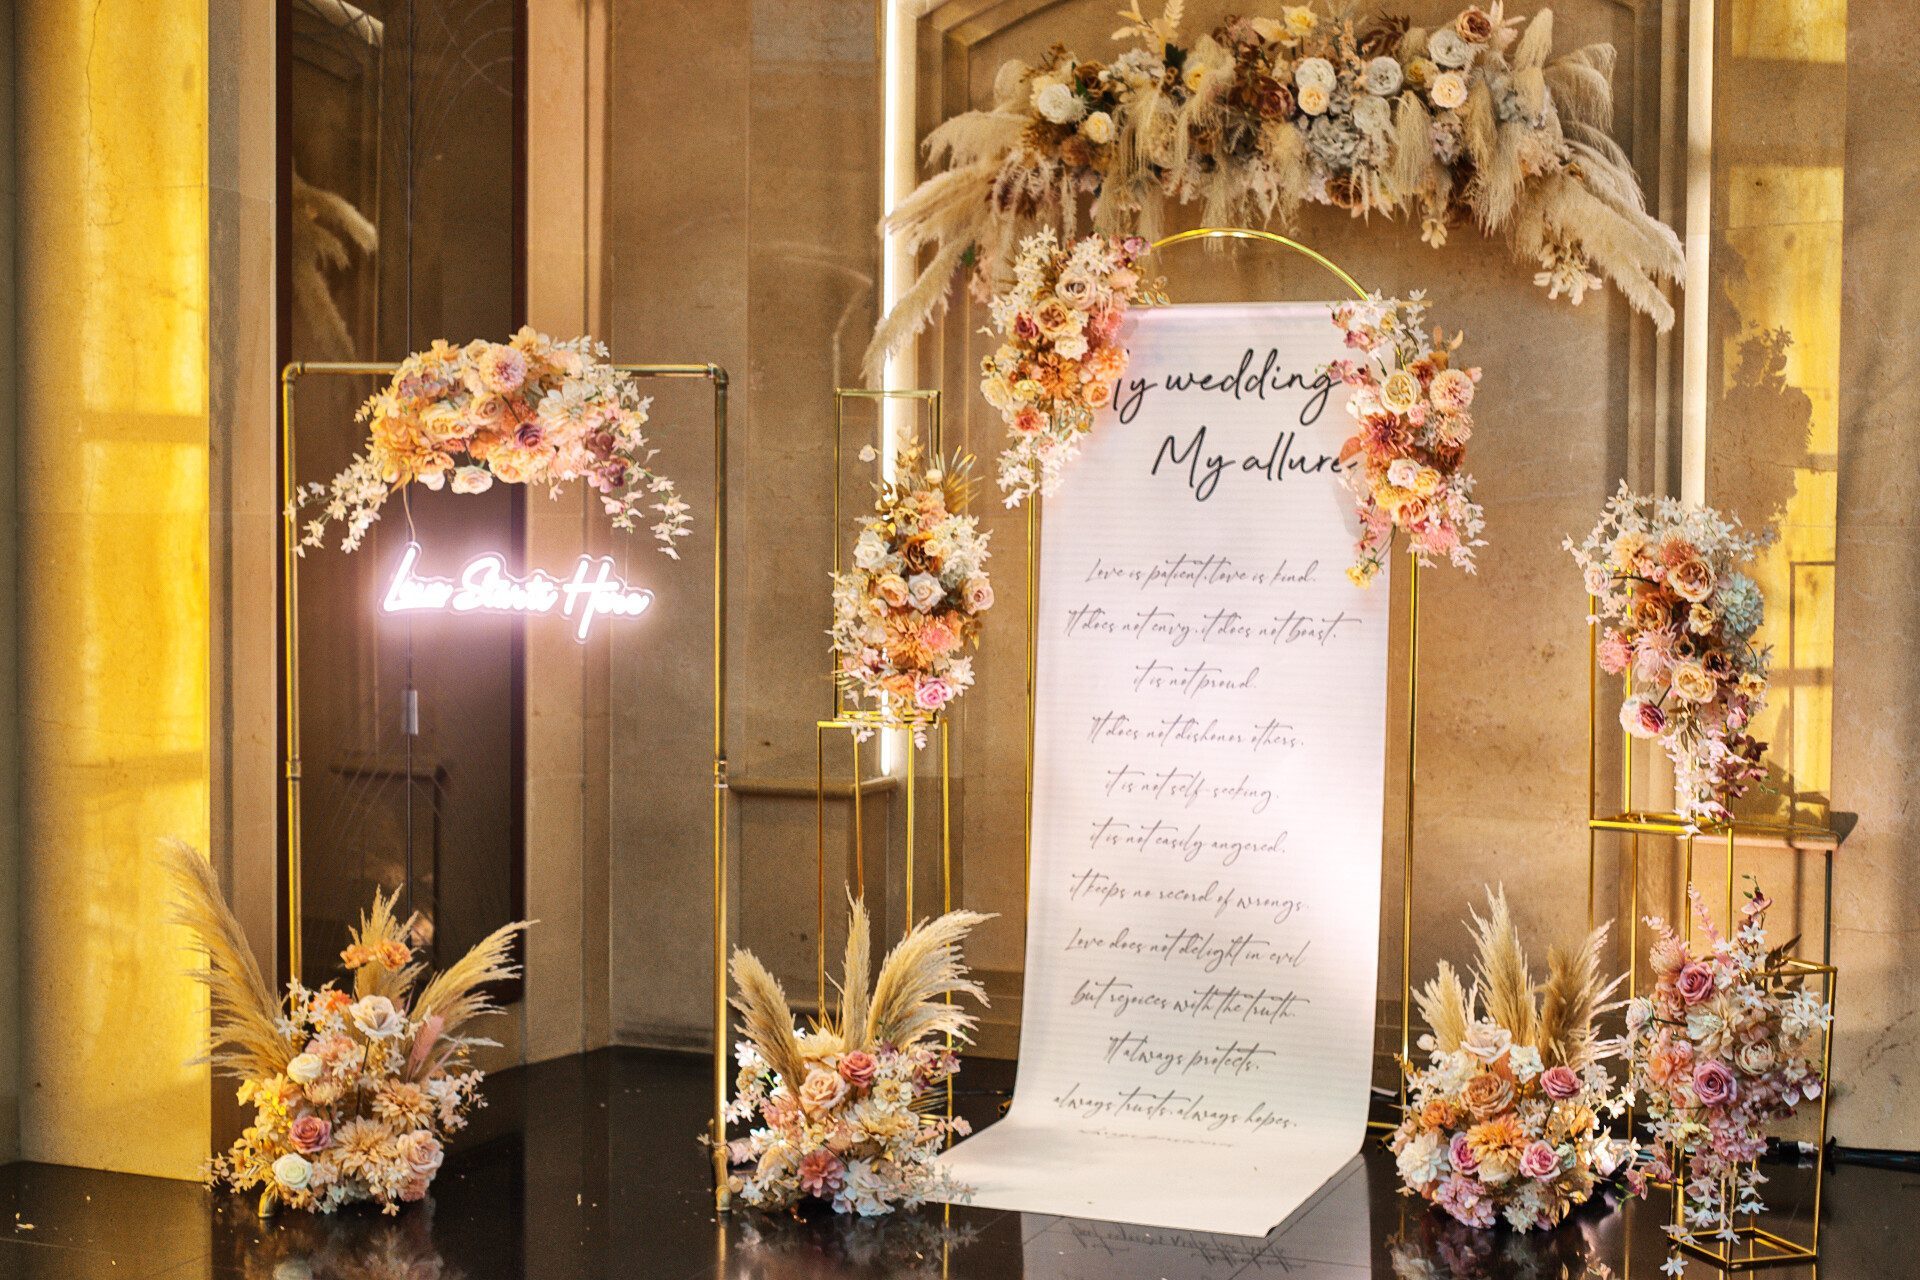 Love Starts Here
y wedding
My allure
Love is patient, love is kind.
It does not envy, it does not boast,
it is not proud.
It does not dishonor others,
it is not self-seeking,
it is not easily angered,
it keeps no record of wrongs.
Love does not delight in evil
but rejoices with the truth.
It always protects,
always trusts, always hopes,